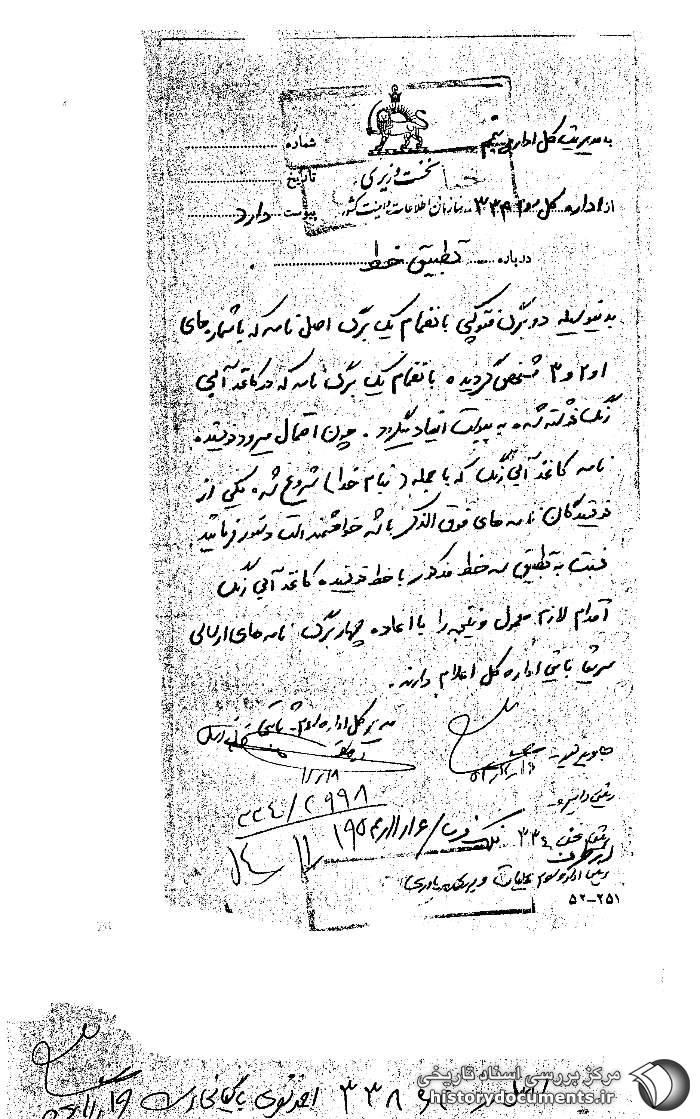 به مدیریت کل اداره پنجم
شماره
نخست وزیری
تاریخ
از اداره کل سوم ۳۳۴ سازمان اطلاعات و امنیت کشور
پیوست دارد
درباره تطبیق خط
بدینوسیله دو برگ فتوکپی بانضمام یک برگ اصل نامه که با شماره‌های
۱ و ۲ و ۳ مشخص گردیده بانضمام یک برگ نامه که در کاغذ آبی
رنگ نوشته شده به پیوست ایفاد میگردد. چون احتمال میرود نویسنده
نامه کاغذ آبی رنگ که با جمله (بنام خدا) شروع شده یکی از
نویسندگان نامه های فوق الذکر باشد خواهشمند است دستور فرمائید
نسبت به تطبیق سه خط مذکور با خط نویسنده کاغذ آبی رنگ
اقدام لازم معمول و نتیجه را با اعاده چهار برگ نامه های ارسالی
سریعا باین اداره کل اعلام دارند.
مدیر کل اداره سوم - ثابتی
۳۳۴/۲۹۹۸
رئیس دایره
رئیس بخش ۳۳۴
۵۲-۲۵۱
مرکز بررسی اسناد تاریخی
historydocuments.ir